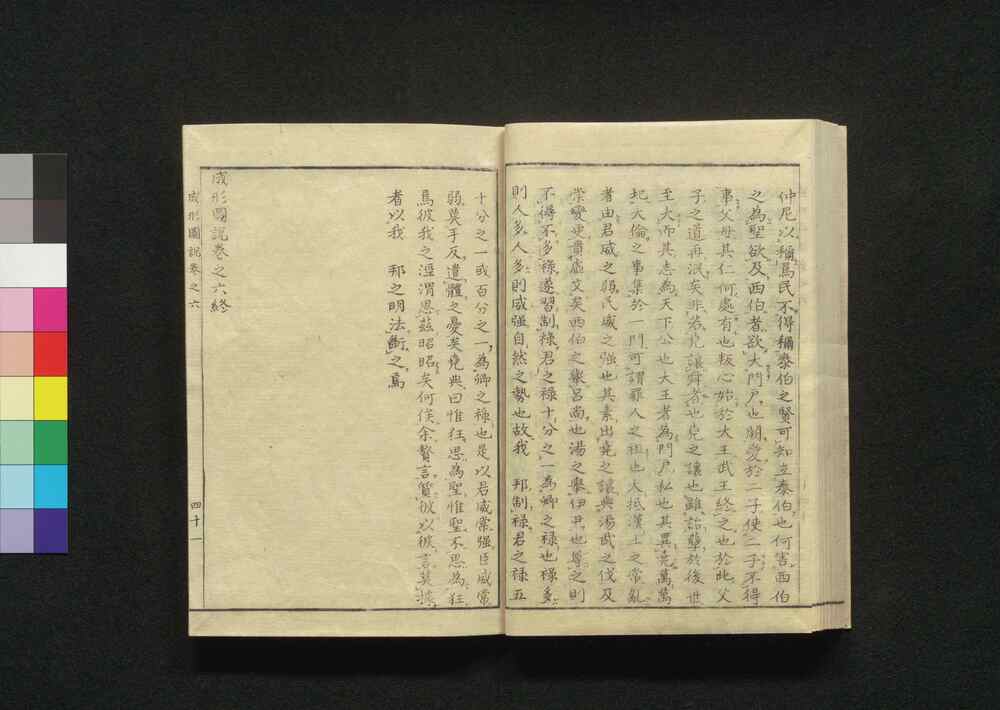 仲尼以稱焉民不得稱泰伯之賢可知立泰伯也何害西伯
之為聖欲及西伯者欲大門戸也關愛於二子使二子不得
事父母其仁何處有也叛心始於大王武王終之也於此父
子之道再泯矣非若堯讓舜者也堯之讓也雖詒孽於後世
至大而其志為天下公也大王者為門戸私也其異堯萬萬
圮大倫之事集於一門可謂罪人之祖也大抵漢土之常亂
者由君威之弱民威之強也其素出堯之讓與湯武之伐及
常變更貴虛文矣西伯之舉呂尚也湯之舉伊尹也尊之則
不得不多祿遂習制祿君之祿十分之一為卿之祿也祿多
則人多人多則威强自然之勢也故我 邦制祿君之祿五
十分之一或百分之一為卿之祿也是以君威常强臣威常
弱莫手反遺體之憂矣堯典曰惟狂思為聖惟聖不思為狂
焉彼我之涇渭恩茲昭昭矣何俟余贅言質彼以彼言莫據
者以我 邦之明法斷之焉
成形圖說卷之六終
成形圖說卷之六
四十一